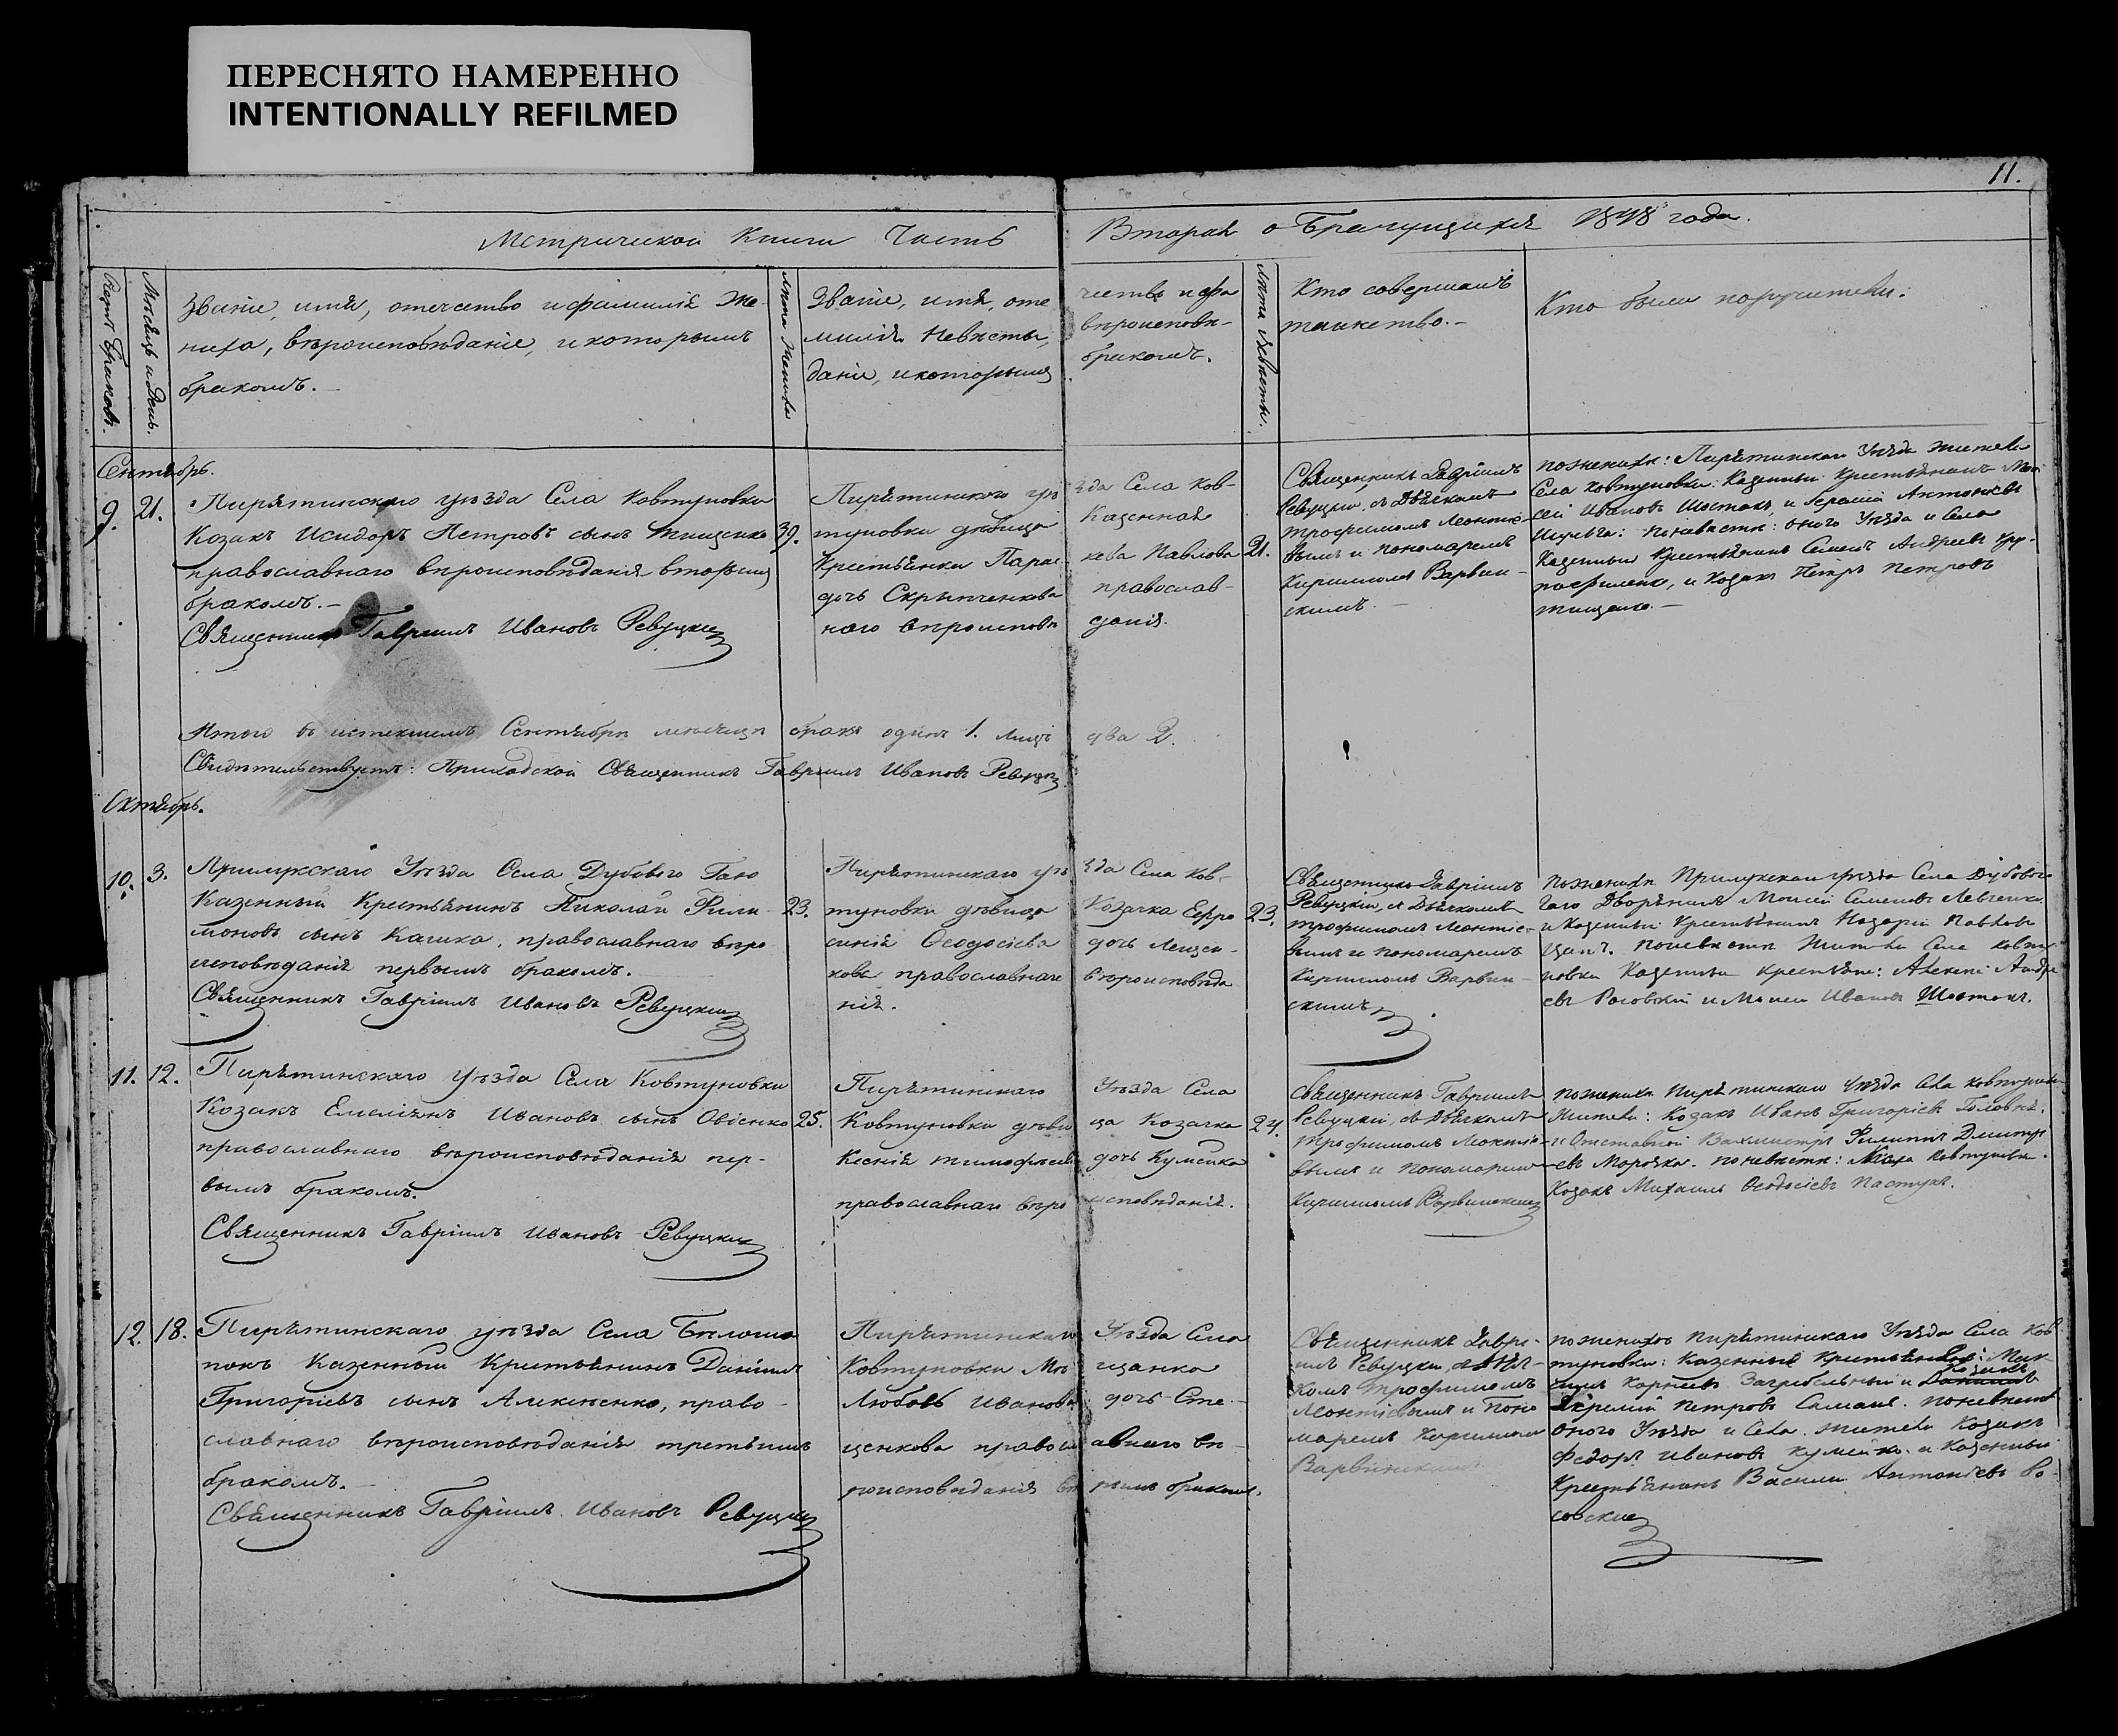 ПЕРЕСНЯТО НАМЕРЕННО
INTENTIONALLY REFILMED
11.
Метрической Книги Часть Вторая о Бракущихся 1848 года.
Счетъ Браковъ.
Мѣсяцъ и День.
Званіе, имя, отечество и фамилія Же-
ниха, вѣроисповѣданіе, и которымъ
бракомъ.
Лѣта Жениха
Званіе, имя, оте чество и фа
милія Невѣсты, вѣроисповѣ-
даніе, и которымъ бракомъ.
Лѣта Невѣсты.
Кто совершалъ
таинство.
Кто были поручители.
Сентябрь.
9. 21.
Пирятинскаго уѣзда Села Ковтуновки
Козакъ Исидоръ Петровъ сынъ Тищенко 39.
православнаго вѣроисповѣданія вторымъ
бракомъ.
Священникъ Гавріилъ Ивановъ Ревуцкій
Пирятинскаго уѣ зда Села Ков-
туновки дѣвица Казенная
Крестьянка Парас кева Павлова 21.
дочь Скрыпченкова православ-
наго вѣроисповѣ данія.
Священникъ Гавріилъ
Ревуцкій, съ Дьячкомъ
Трофимомъ Леонтіе-
вымъ и пономаремъ
Кирилломъ Варвин-
скимъ.
по женихѣ: Пирятинскаго Уѣзда жители
Села Ковтуновки: Казенныи Крестьянинъ Мои
сей Ивановъ Шостакъ, и Антоніевъ
по невѣстѣ: оного Уѣзда и Села
Казенныи Крестьянинъ Семенъ Андреевъ
и Козакъ Петръ Петровъ
Тищенко.
Итого въ истекшемъ Сентябрѣ мѣсяцѣ бракъ одинъ 1. лицъ два 2.
Свидѣтельствуетъ: Приходской Священникъ Гавріилъ Ивановъ Ревуцкій
Октябрь.
10. 3.
Прилукскаго Уѣзда Села Дубового Гаю
Казенный Крестьянинъ Николай Фили- 23.
моновъ сынъ Кашка, православнаго вѣро
исповѣданія первымъ бракомъ.
Священникъ Гавріилъ Ивановъ Ревуцкій
Пирятинскаго уѣ зда Села Ков-
туновки дѣвица Козачка Ефро 23.
синія Ѳеодосіева дочь Лещен-
кова православнаго вѣроисповѣда
нія.
Священникъ Гавріилъ
Ревуцкій, съ Дьячкомъ
Трофимомъ Леонтіе-
вымъ и пономаремъ
Кирилломъ Варвин-
скимъ
по женихѣ Прилукскаго уѣзда Села Дубового
Гаю Дворянинъ Моисей Семеновъ Левченко,
и Казенный Крестьянинъ Назарій Павловъ
по невѣстѣ жители Села Ковту-
новки Казенныи крестьяне: Алексѣй Андре
евъ Росовскій и Моисей Ивановъ Шостакъ.
11. 12.
Пирятинскаго Уѣзда Села Ковтуновки
Козакъ Емеліянъ Ивановъ сынъ Овсіенко 25.
православнаго вѣроисповѣданія пер-
вымъ бракомъ.
Священникъ Гавріилъ Ивановъ Ревуцкій
Пирятинскаго Уѣзда Села
Ковтуновки дѣви ца Козачка 24.
Ксенія Тимофѣева дочь Кумейка
православнаго вѣро исповѣданія.
Священникъ Гавріилъ
Ревуцкій, съ Дьячкомъ
Трофимомъ Леонтіе-
вымъ и пономаремъ
Кирилломъ Варвинскимъ
по женихѣ Пирятинскаго Уѣзда Села Ковтуновки
жители: Козакъ Иванъ Григоріевъ Головня.
и Отставной Вахмистръ Филиппъ Дмитрі
евъ Морозка. по невѣстѣ: Села Ковтуновки
Козакъ Михаилъ Ѳеодосіевъ Пастухъ.
12. 18.
Пирятинскаго уѣзда Села Бѣлоша
покъ Казенный Крестьянинъ Даніилъ
Григоріевъ сынъ Алексѣенко, право-
славнаго вѣроисповѣданія третьимъ
бракомъ.
Священникъ Гавріилъ Ивановъ Ревуцкій
Пирятинскаго Уѣзда Села
Ковтуновки Мѣ щанка
Любовь Иванова дочь Сте-
ценкова правосл авнаго вѣ-
роисповѣданія вто рымъ бракомъ.
Священникъ Гаврі-
илъ Ревуцкій, съ Дьяч-
комъ Трофимомъ
Леонтіевымъ и поно
маремъ Кирилломъ
Варвинскимъ
по женихѣ Пирятинскаго Уѣзда Села Ков
туновки: Казенный Крестьянинъ: Мак-
симъ Корніевъ Загребельный и Козакъ
Петровъ по невѣстѣ
оного Уѣзда и Села жители Козакъ
Федоръ Ивановъ Кумейко и Казенныи
Крестьянинъ Василій Антоніевъ Ро-
совскій